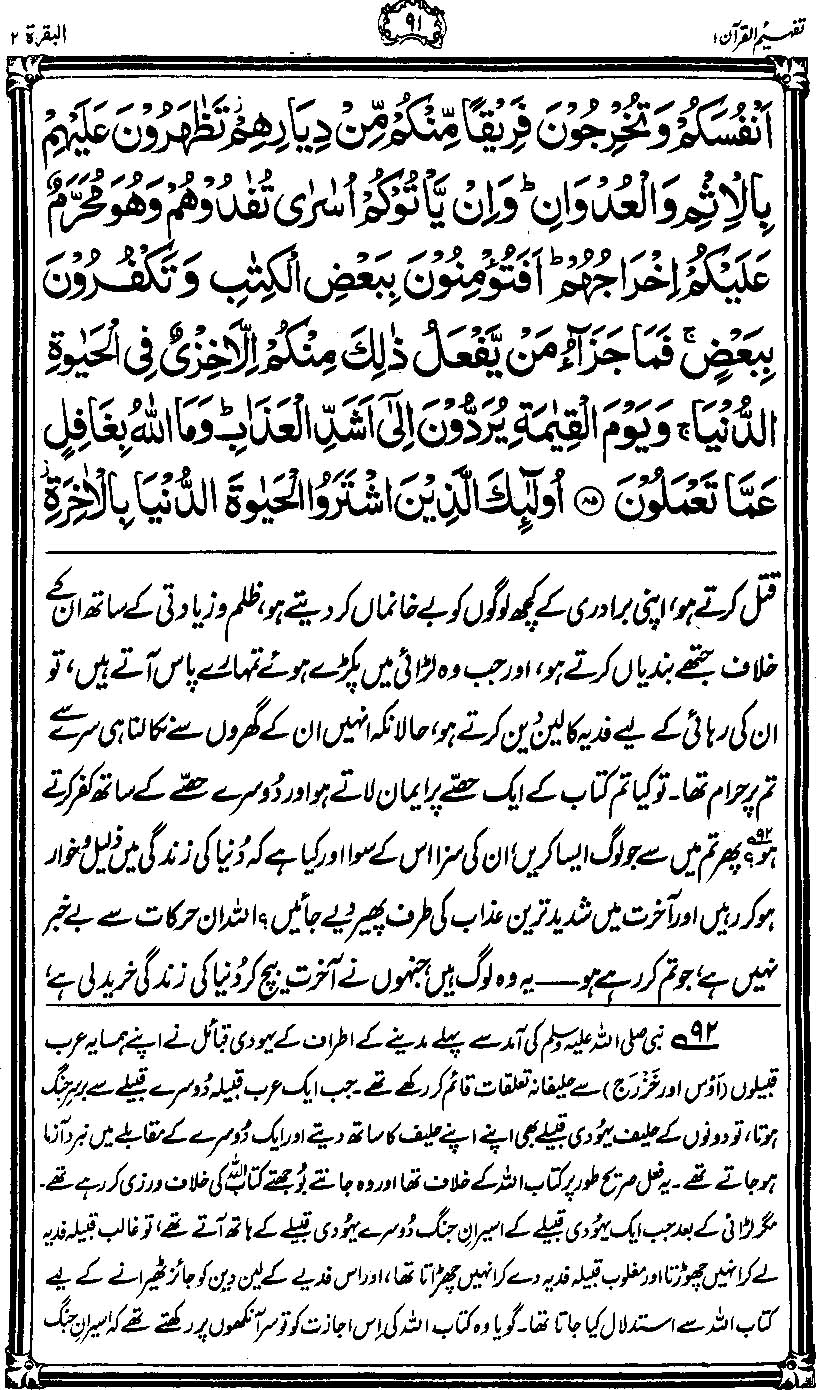 تفہیم القرآن ۱
۹۱
البقرۃ ۲
اَنْفُسَكُمْ وَتُخْرِجُوْنَ فَرِيْقًا مِّنْكُمْ مِّنْ دِيَارِهِمْ تَظٰهَرُوْنَ عَلَيْهِمْ
بِالْاِثْمِ وَالْعُدْوَانِ ؕ وَاِنْ يَّاْتُوْكُمْ اُسٰرٰى تُفٰدُوْهُمْ وَهُوَ مُحَرَّمٌ
عَلَيْكُمْ اِخْرَاجُهُمْ ؕ اَفَتُؤْمِنُوْنَ بِبَعْضِ الْكِتٰبِ وَتَكْفُرُوْنَ
بِبَعْضٍ ۚ فَمَا جَزَآءُ مَنْ يَّفْعَلُ ذٰلِكَ مِنْكُمْ اِلَّا خِزْىٌ فِى الْحَيٰوةِ
الدُّنْيَا ۚ وَيَوْمَ الْقِيٰمَةِ يُرَدُّوْنَ اِلٰٓى اَشَدِّ الْعَذَابِ ؕ وَمَا اللّٰهُ بِغَافِلٍ
عَمَّا تَعْمَلُوْنَ ۝۸۵ اُولٰٓئِكَ الَّذِيْنَ اشْتَرَوُا الْحَيٰوةَ الدُّنْيَا بِالْاٰخِرَةِ ؗ
قتل کرتے ہو، اپنی برادری کے کچھ لوگوں کو بے خانماں کر دیتے ہو، ظلم و زیادتی کے ساتھ ان کے
خلاف جتھے بندیاں کرتے ہو، اور جب وہ لڑائی میں پکڑے ہوئے تمہارے پاس آتے ہیں، تو
ان کی رہائی کے لیے فدیہ کا لین دین کرتے ہو، حالانکہ انہیں ان کے گھروں سے نکالنا ہی سرے سے
تم پر حرام تھا۔ تو کیا تم کتاب کے ایک حصّے پر ایمان لاتے ہو اور دُوسرے حصّے کے ساتھ کفر کرتے
ہو؟۹۲ پھر تم میں سے جو لوگ ایسا کریں، ان کی سزا اس کے سوا اور کیا ہے کہ دُنیا کی زندگی میں ذلیل و خوار
ہو کر رہیں اور آخرت میں شدید ترین عذاب کی طرف پھیر دیے جائیں؟ اللہ ان حرکات سے بے خبر
نہیں ہے، جو تم کر رہے ہو —— یہ وہ لوگ ہیں، جنہوں نے آخرت بیچ کر دُنیا کی زندگی خرید لی ہے،
۹۲ نبی صلی اللہ علیہ وسلم کی آمد سے پہلے مدینے کے اطراف کے یہودی قبائل نے اپنے ہمسایہ عرب
قبیلوں (اَوْس اور خَزْرَج) سے حلیفانہ تعلقات قائم کر رکھے تھے۔ جب ایک عرب قبیلہ دُوسرے قبیلے سے برسرِ جنگ
ہوتا، تو دونوں کے حلیف یہُودی قبیلے بھی اپنے اپنے حلیف کا ساتھ دیتے اور ایک دُوسرے کے مقابلے میں نبرد آزما
ہو جاتے تھے۔ یہ فعل صریح طور پر کتاب اللہ کے خلاف تھا اور وہ جانتے بُوجھتے کتاب اللہ کی خلاف ورزی کر رہے تھے۔
مگر لڑائی کے بعد جب ایک یہُودی قبیلے کے اسیرانِ جنگ دُوسرے یہُودی قبیلے کے ہاتھ آتے تھے، تو غالب قبیلہ فدیہ
لے کر انہیں چھوڑتا اور مغلوب قبیلہ فدیہ دے کر انہیں چھڑاتا تھا، اور اس فدیے کے لین دین کو جائز ٹھیرانے کے لیے
کتاب اللہ سے استدلال کیا جاتا تھا۔ گویا وہ کتاب اللہ کی اِس اجازت کو تو سر آنکھوں پر رکھتے تھے کہ اسیرانِ جنگ